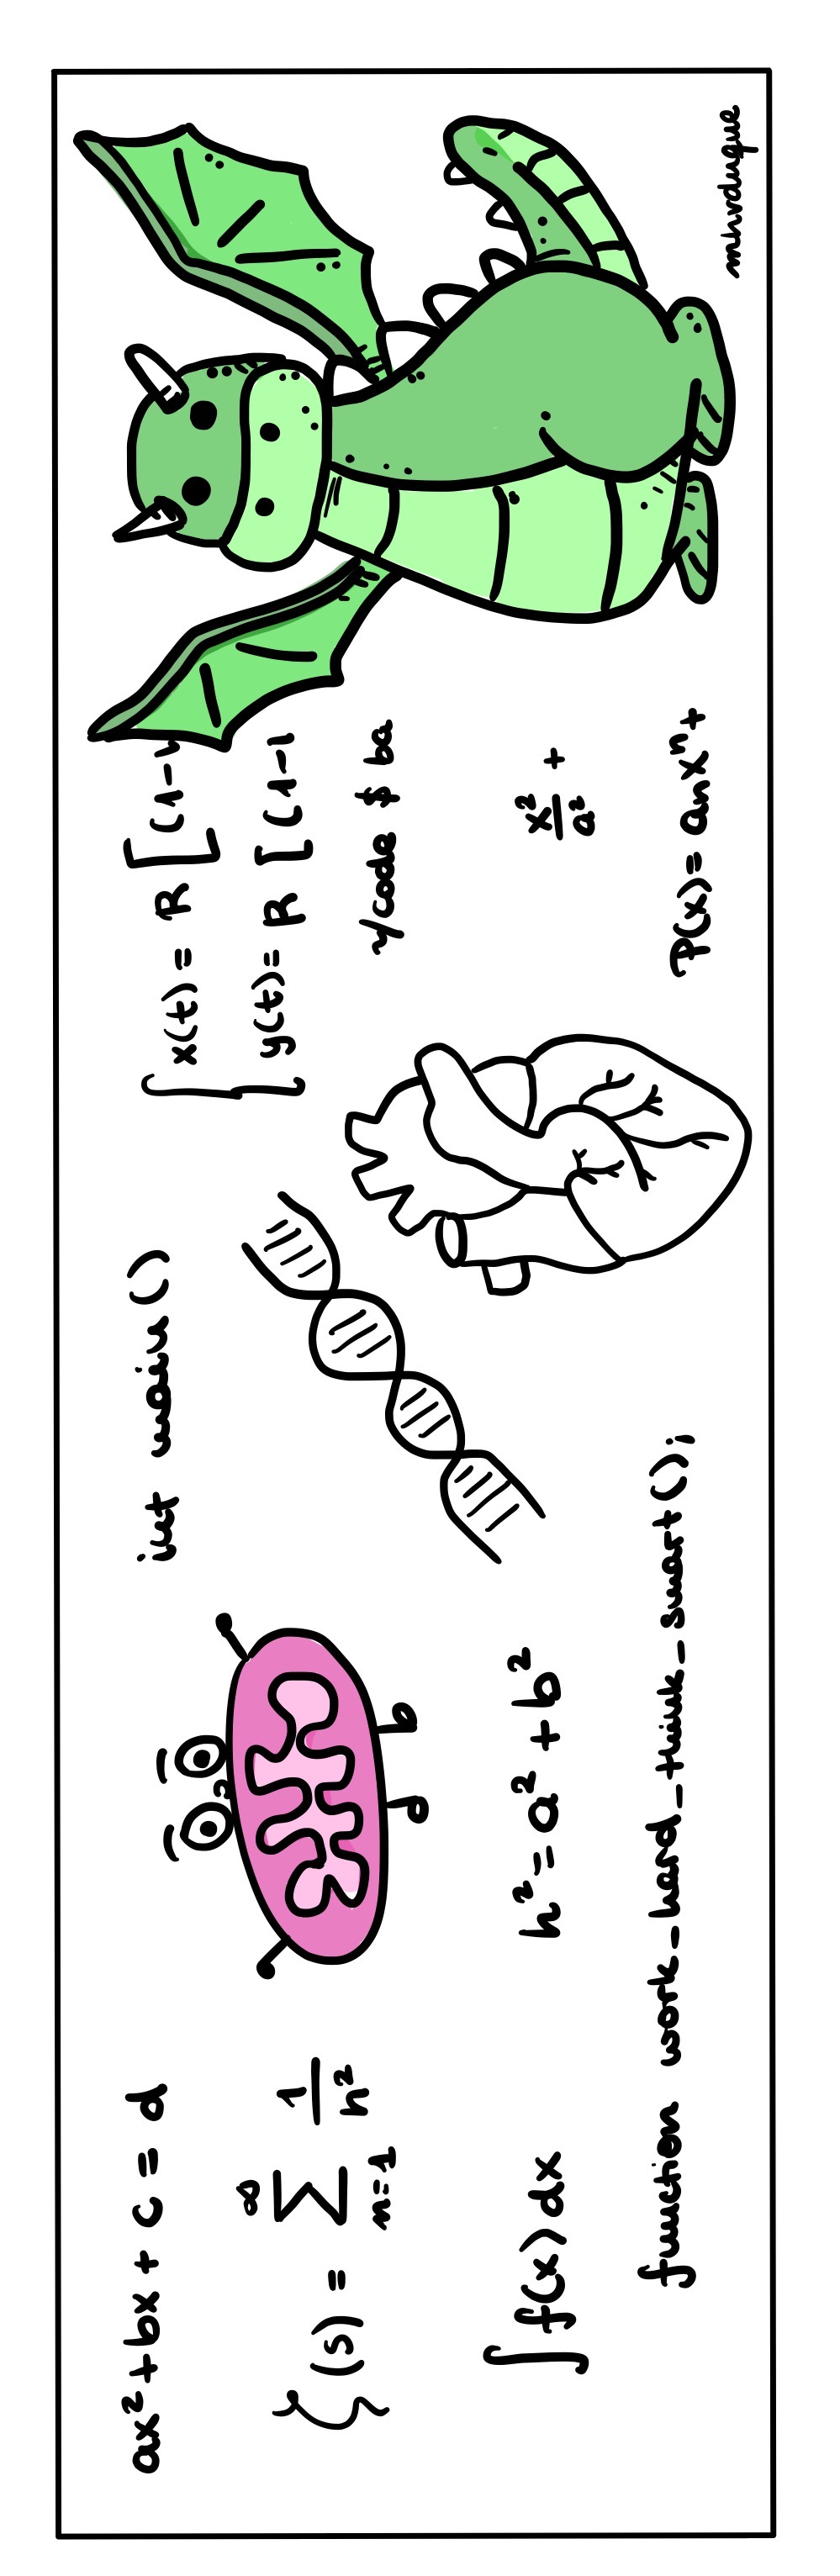 ax²+bx + c = d
ζ(s) = ∞ Σ n=1 1/n²
∫f(x)dx
h² = a² + b²
function work_hard_think_smart();
int main()
x(t) = R [(1-
y(t)= R [(1-
~/code $ ba
x²/a² +
P(x)= anxⁿ+
mhrduque